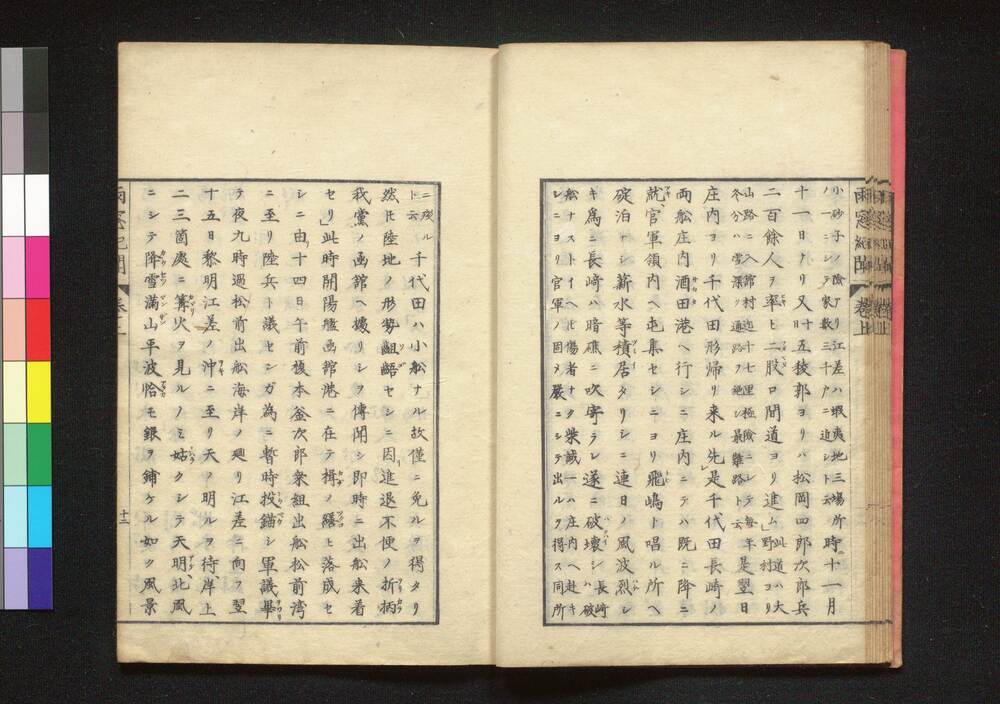 小砂子ノ險アリ江差ハ蝦夷地三場所
ノ一ニシテ家数三千戸ニ近シト云
時十一月
十一日ナリ又五稜郭ヨリハ松岡四郎次郎兵
二百餘人ヲ率ヒ二股口間道ヨリ進ム
此道ハ大
野村ヨリ
山路ニ入館村迄十七里極險ニシテ毎年
冬分ハ雪深ク通路ヲ絶シ最難路ト云
是翌日
庄内ヨリ千代田形帰リ来ル先是千代田長崎ノ
両舩庄内酒田港ヘ行シニ庄内ニテハ既ニ降ニ
就官軍領内ヘ屯集セシニヨリ飛嶋ト唱ル所ヘ
碇泊シ薪水等積居タリシニ連日ノ風波烈シ
キ為ニ長崎ハ暗礁ニ吹寄ラレ遂ニ破壊シ
長崎
ハ破
舩ナストイヘ𪜈傷者ナク柴誠一ハ庄内ヘ赴キ
シニヨリ官軍ノ囲メ嚴ニシテ出ルヲ得ス同所
雨窓紀聞 巻上
ニ残ル
ト云
千代田ハ小舩ナル故僅ニ免ルヲ得タリ
然𪜈陸地ノ形勢齟齬セシニ因進退不便ノ折柄
我黨ノ函館ヘ據リシヲ傳聞シ即時ニ出舩来着
セリ此時開陽艦函館港ニ在テ楫ノ繕ヒ落成セ
シニ由十四日午前榎本釜次郎衆組出舩松前湾
ニ至リ陸兵ト議センガ為ニ暫時投錨シ軍議畢
テ夜九時過松前出舩海岸ノ廻リ江差ニ向フ翌
十五日黎明江差ノ沖ニ至リ天ノ明ルヲ待岸上
二三箇處ニ篝火ヲ見ルノミ姑クシテ天明北風
ニシテ降雪満山平波恰モ銀ヲ鋪ケル如ク風景
雨窓紀聞 巻上
十二